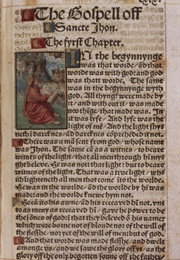 The Gospell off
Sancte Jhon.
The fyrst Chapter.
IN the begynnynge
was that worde, and that
worde was with god: and god
was thatt worde. The same
was in the begynnynge wyth
god. All thyngs were made by
it, and with out it, was made
noo thinge: that made was.
In it was lyfe, And lyfe was the
light of men, And the light shy-
neth in darcknes, and darcknes comprehended it not.
There was a man sent from god, whose name
was Jhon. The same cam as a witnes, to beare
witnes of the light, that all men through him my-
ght beleve. He was not that light: but to beare wit-
nes of the light. That was a true light, whi-
ch lighteneth all men that come into the worlde.
He was in the worlde, and the worlde by him was
made: and the worlde knewe hym not.
He cam into his awne, and his receaved hym not. vn-
to as meny as receaved him, gave he power to be
the sonnes of god: in that they beleved on his name:
which were borne not of bloude nor of the will of
the flesshe, nor yet of the will of men: but of god.
And that worde was made flesshe, and dwelt
amonge vs, and we sawe the glory off yt, as the
glory off the only begotten sonne off the father